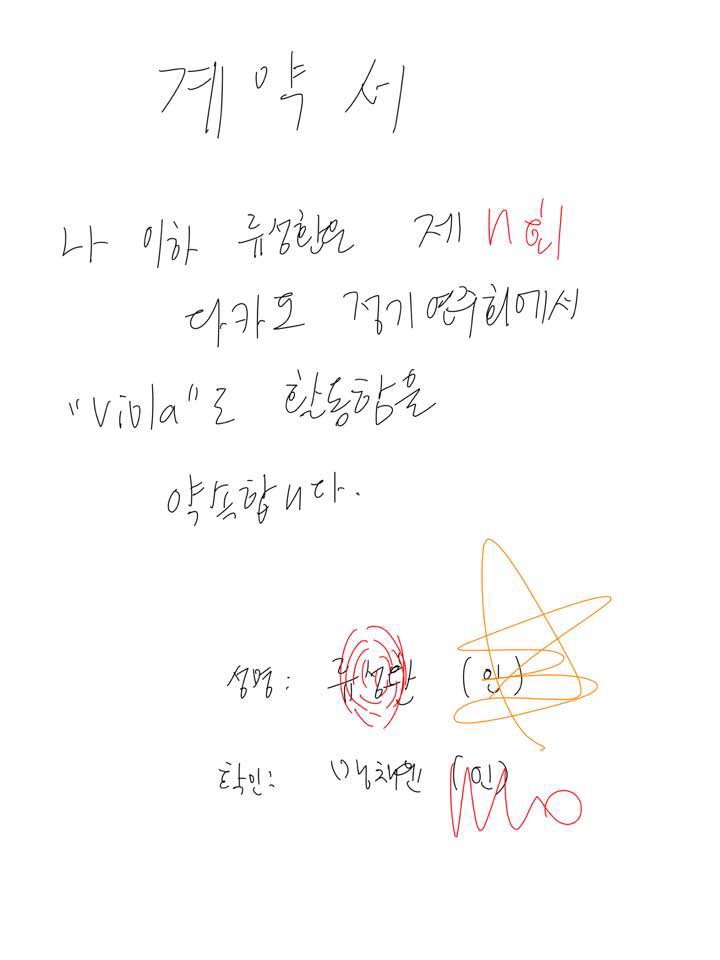 계약서
나 이하 류성환은 제 n회
다카포 정기연주회에서
"Viola"로 활동함을
약속합니다.
성명: 류성환 (인)
확인: (인)